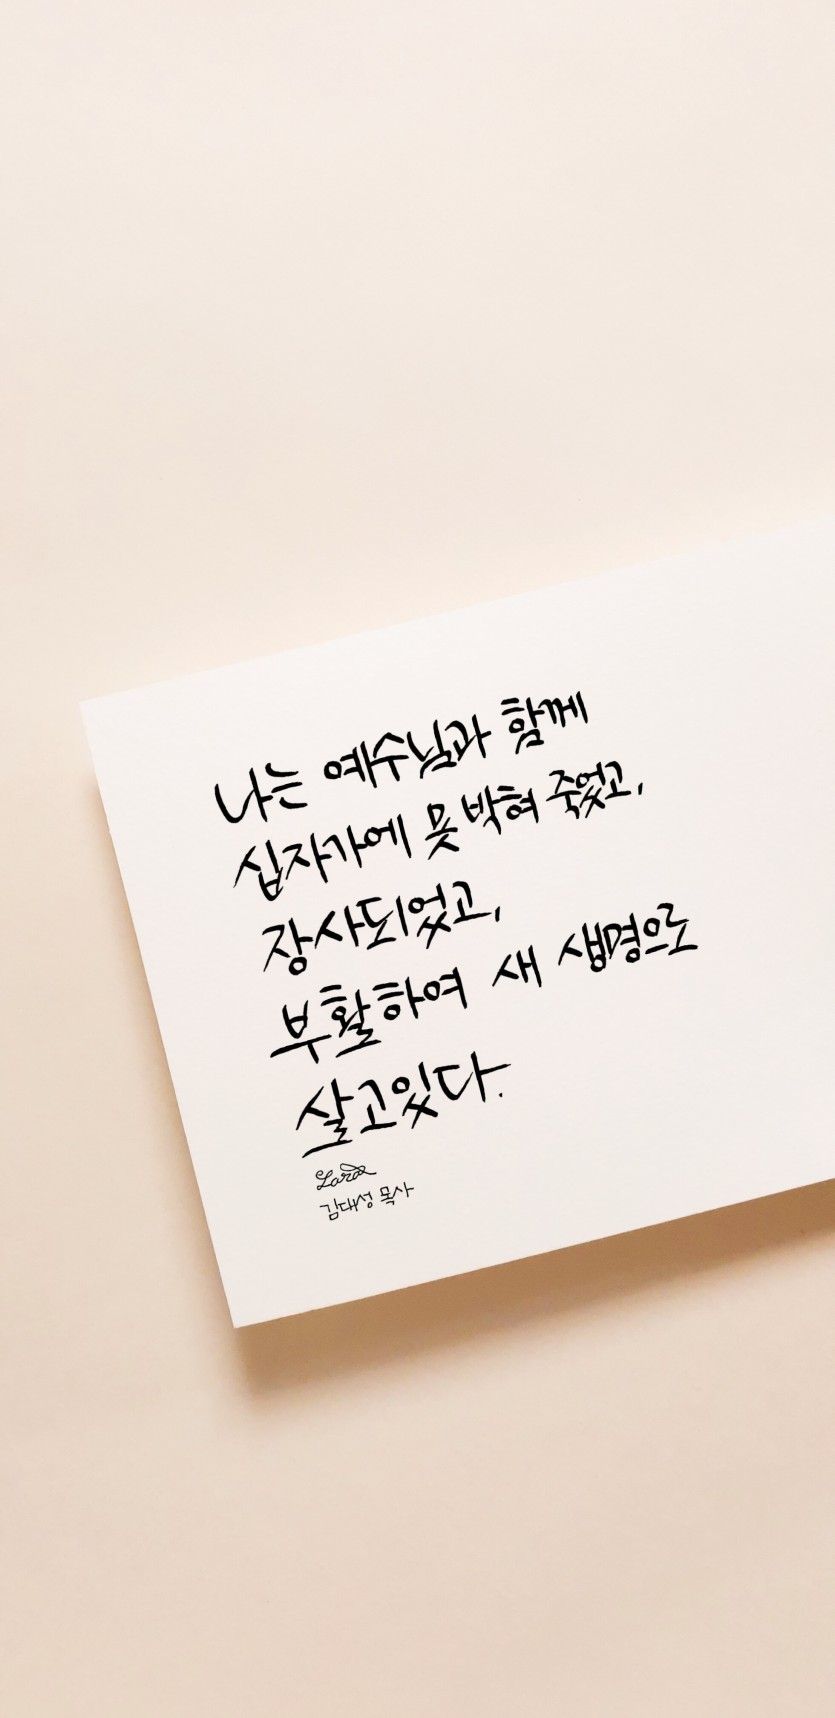 나는 예수님과 함께
십자가에 못 박혀 죽었고,
장사되었고,
부활하여 새 생명으로
살고있다.
Lara
김대성 목사